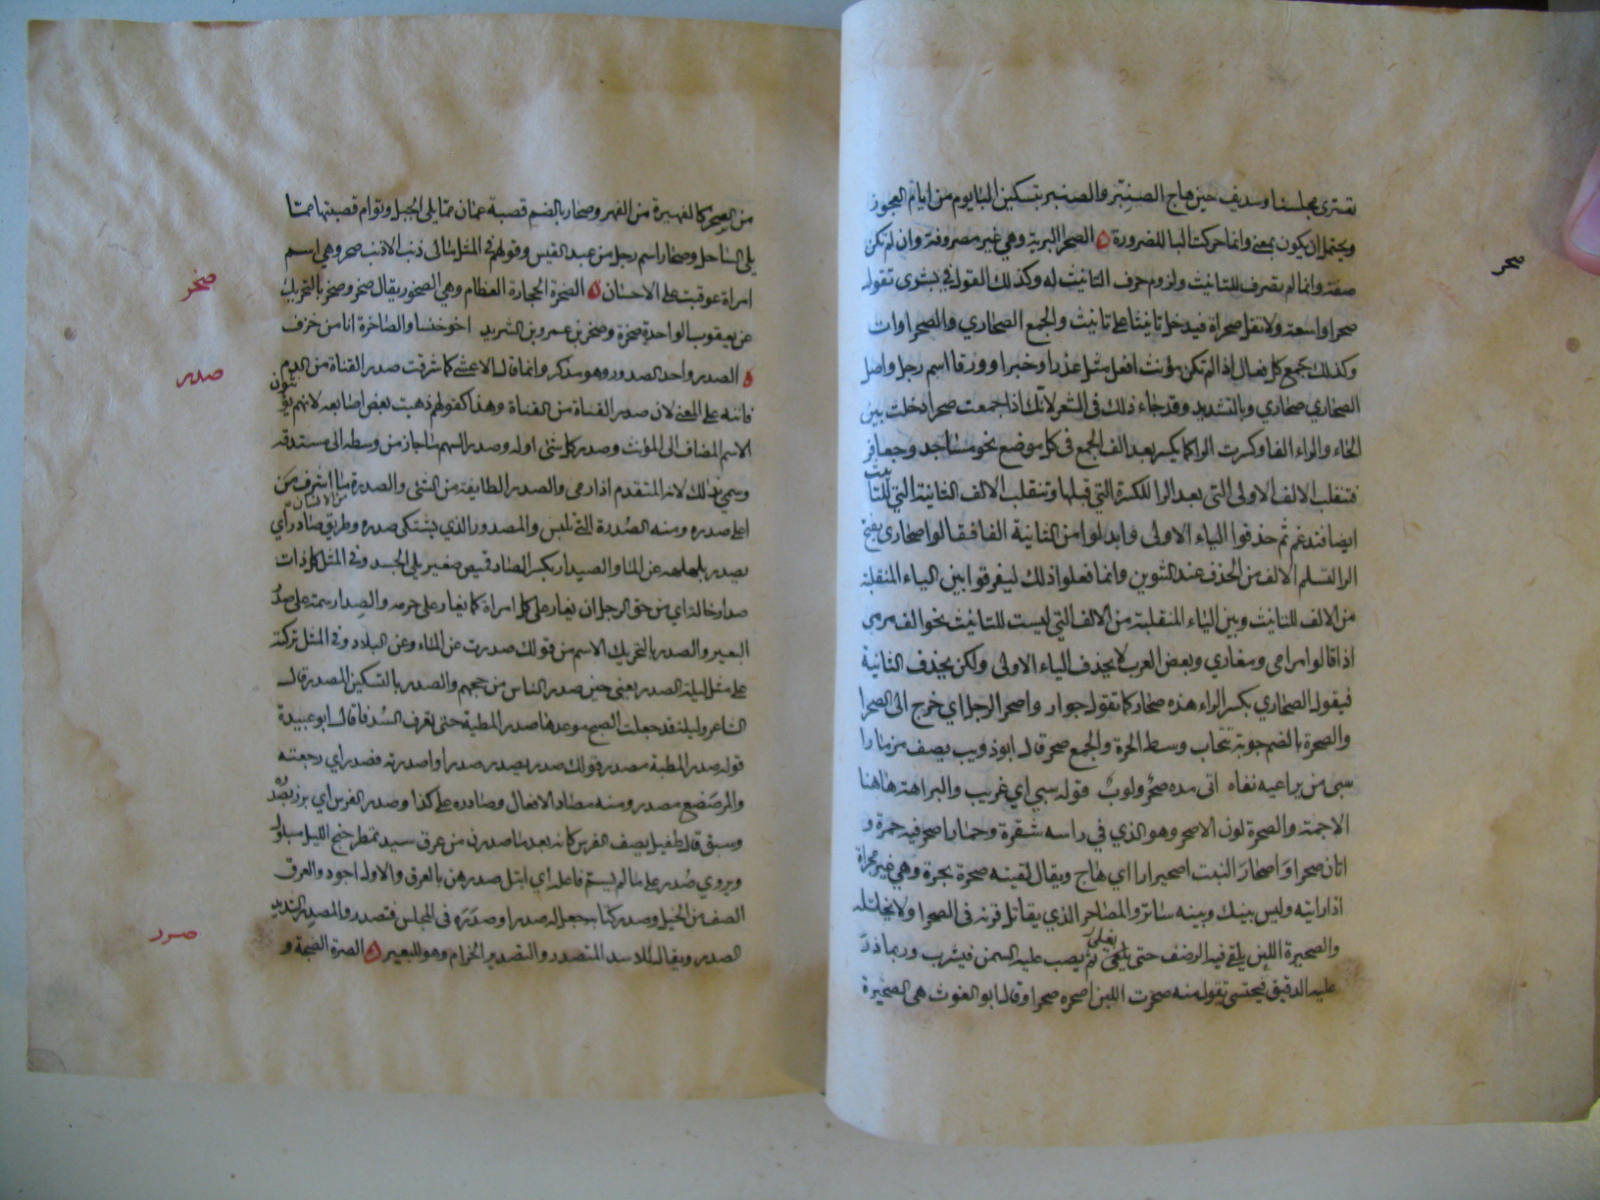 نعترى مجلسنا وسديف حين هاج الصنبر والصنبر بتسكين البا يوم من ايام العجوز
ويحتمل ان يكون بمعنى وانما حركت البا للضرورة ه الصحرا البرية وهي غير مصروفة وان لم تكن
صحر
صفة وانما لم تصرف للتانيث ولزوم حرف التانيث له وكذلك القول في بشرى تقول
صحرا واسعة ولا تقل صحراة فيدخل تانيثا على تانيث والجمع الصحاري والصحراوات
وكذلك جمع كل فعلا اذا لم تكن مؤنث افعل مثل عذرا وخبرا وورقا اسم رجل واصل
الصحاري صحاري وبالتشديد وقد جاء ذلك في الشعر لانك اذا جمعت صحرا دخلت بين
الحاء والراء الفا وكسرت الرا كما يكسر بعد الف الجمع في كل موضع نحو مساجد وجعافر
فتنقلب الالف الاولى التي بعد الرا للكسرة التي قبلها وتنقلب الالف الثانية التي للتانيث
ايضا فتدغم ثم حذفوا الياء الاولى وابدلوا من الثانية الفا فقالوا صحارى بفتح
الرا لتسلم الالف من الحذف عند التنوين وانما فعلوا ذلك ليفرقوا بين الياء المنقلبة
من الالف للتانيث وبين الياء المنقلبة من الالف التي ليست للتانيث نحو الف مرمى
اذا قالوا مرامى ومغازي وبعض العرب لا يحذف الياء الاولى ولكن يحذف الثانية
فيقول الصحاري بكسر الراء هذه صحار كما تقول جوار واصحر الرجل اي خرج الى الصحرا
والصحرة بالضم جوبة تنجاب وسط الحرة والجمع صحر قال ابو ذويب يصف مزمارا
سبى من يراعيه نفاه اتى مده صحر ولوب قوله سبي اي غريب والبراهة هاهنا
الاجمة والصحرة لون الاصحر وهو الذي في راسه شقرة وحمار اصحر فيه حمرة و
اتان صحرا واصحار النبت اصحيرارا اي هاج ويقال لقيته صحرة بحرة وهي غير مجراة
اذا رايته وليس بينك وبينه ساتر والمصاحر الذي يقاتل قرنه في الصحرا ولا يخاتله
والصحيرة اللبن يلقى فيه الرضف حتى يغلى ثم يصب عليه السمن فيشرب وربما ذر
عليه الدقيق فيحتسى تقول منه صحرت اللبن اصحره صحرا وقال ابو الغوث هي الصحيرة
من الصحر كالفهيرة من الفهر وصحار بالضم قصبة عمان مما يلي الجبل وتوام قصبتها مما
يلي الساحل وصحار اسم رجل من عبد القيس وقولهم في المثل مالى ذنب الا ذنب صحر وهي اسم
امراة عوقبت على الاحسان ه الصخرة الحجارة العظام وهي الصخور يقال صخر وصخر بالتحريك
صخر
عن يعقوب الواحدة صخرة وصخر بن عمرو بن الشريد اخو خنسا والصاخرة انا من خزف
ه الصدر واحد الصدور وهو مذكر وانما قال الاعشى كما شرقت صدر القناة من الدم
صدر
فانثه على المعنى لان صدر القناة من القناة وهذا كقولهم ذهبت بعض اصابعه لانهم يؤنثون
الاسم المضاف الى المؤنث وصدر كل شئ اوله وصدر السهم ما جاز من وسطه الى مستدقه
وسمي بذلك لانه المتقدم اذا رمى والصدر الطايفة من الشئ والصدرة ما اشرف من
من الانسان
اعلى صدره ومنه الصدرة التي تلبس والمصدور الذي يشتكى صدره وطريق صادر اي
يصدر باهله عن الماء والصدار بكسر الصاد قميص صغير يلى الجسد وفي المثل كل ذات
صدار خالة اي من حق الرجل ان يغار على كل امراة كما يغار على حرمه والصدار سمة على صدر
البعير والصدر بالتحريك الاسم من قولك صدرت عن الماء وعن البلاد وفي المثل تركته
على مثل ليلة الصدر يعنى حين صدر الناس من حجهم والصدر بالتسكين المصدر قال
الشاعر وليلة قد جعلت الصبح موعدها صدر المطية حتى تعرف السدفا قال ابو عبيدة
قوله صدر المطية مصدر قولك صدر يصدر صدرا واصدرته فصدر اي رجعته
والموضع مصدر ومنه مصادر الافعال وصادره على كذا وصدر الفرس اي برز بصدره
وسبق قال طفيل يصف الفرس كانه بعد ما صدرن من عرق سيد تمطر جنح الليل مبلول
ويروي صدر على ما لم يسم فاعله اي ابتل صدرهن بالعرق والاول اجود والعرق
الصف من الخيل وصدر كتابه جعل له صدرا وصدره في المجلس فتصدر والمصدر الشديد
الصدر ويقال للاسد المتصدر والتصدير الحزام وهو للبعير ه الصرة الضجة و
صرر